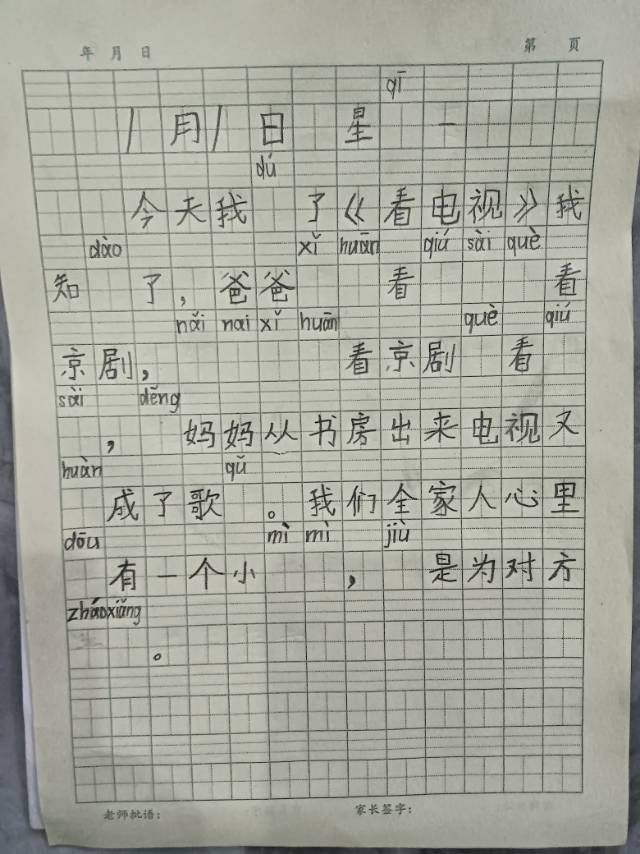 年 月 日 第 页
qī
1月1日 星 一
dú
今天我 了《看电视》我
dào xǐ huān qiú sài què
知 了，爸爸 看 看
nǎi nai xǐ huān què qiú
京剧， 看京剧 看
sài děng
， 妈妈从书房出来电视又
huàn qǔ
成了歌 。我们全家人心里
dōu mì mì jiù
有一个小 ， 是为对方
zháo xiǎng
。
老师批语： 家长签字：